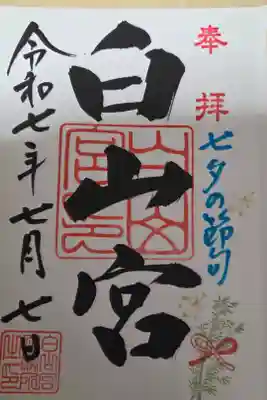 奉拝
七夕の節句
白山宮
令和七年七月七日